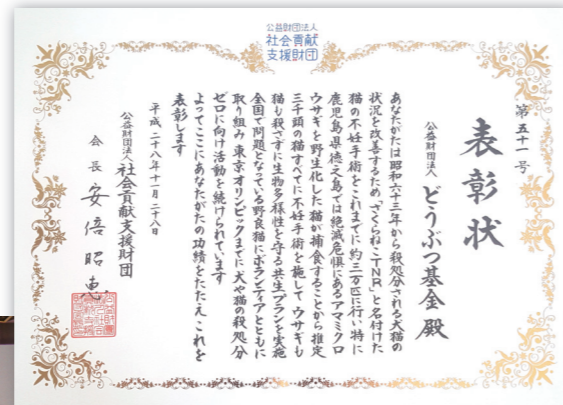 公益財団法人
社会貢献
支援財団
第五十一号
表彰状
公益財団法人 どうぶつ基金 殿
あなたがたは昭和六十三年から殺処分される犬猫の
状況を改善するため「さくらねこTNR」と名付けた
猫の不妊手術をこれまでに約三万匹に行い特に
鹿児島県徳之島では絶滅危惧にあるアマミクロ
ウサギを野生化した猫が捕食することから推定
三千頭の猫すべてに不妊手術を施して ウサギも
猫も殺さずに生物多様性を守る共生プランを実施
全国で問題となっている野良猫にボランティアとともに
取り組み 東京オリンピックまでに犬や猫の殺処分
ゼロに向け活動を続けられています
よってここにあなたがたの功績をたたえ これを
表彰します
平成二十八年十一月二十八日
公益財団法人 社会貢献支援財団
会長 安倍昭恵